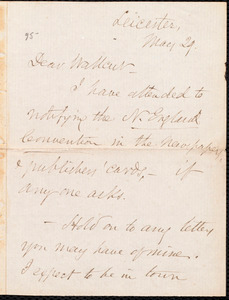 Leicester,
May 29
95
Dear Wallcut -
I have attended to
notifying the N. England
Convention in the Newspapers,
& publishers' cards, - if
any one asks.
- Hold on to any letters
you may have of mine.
I expect to be in town